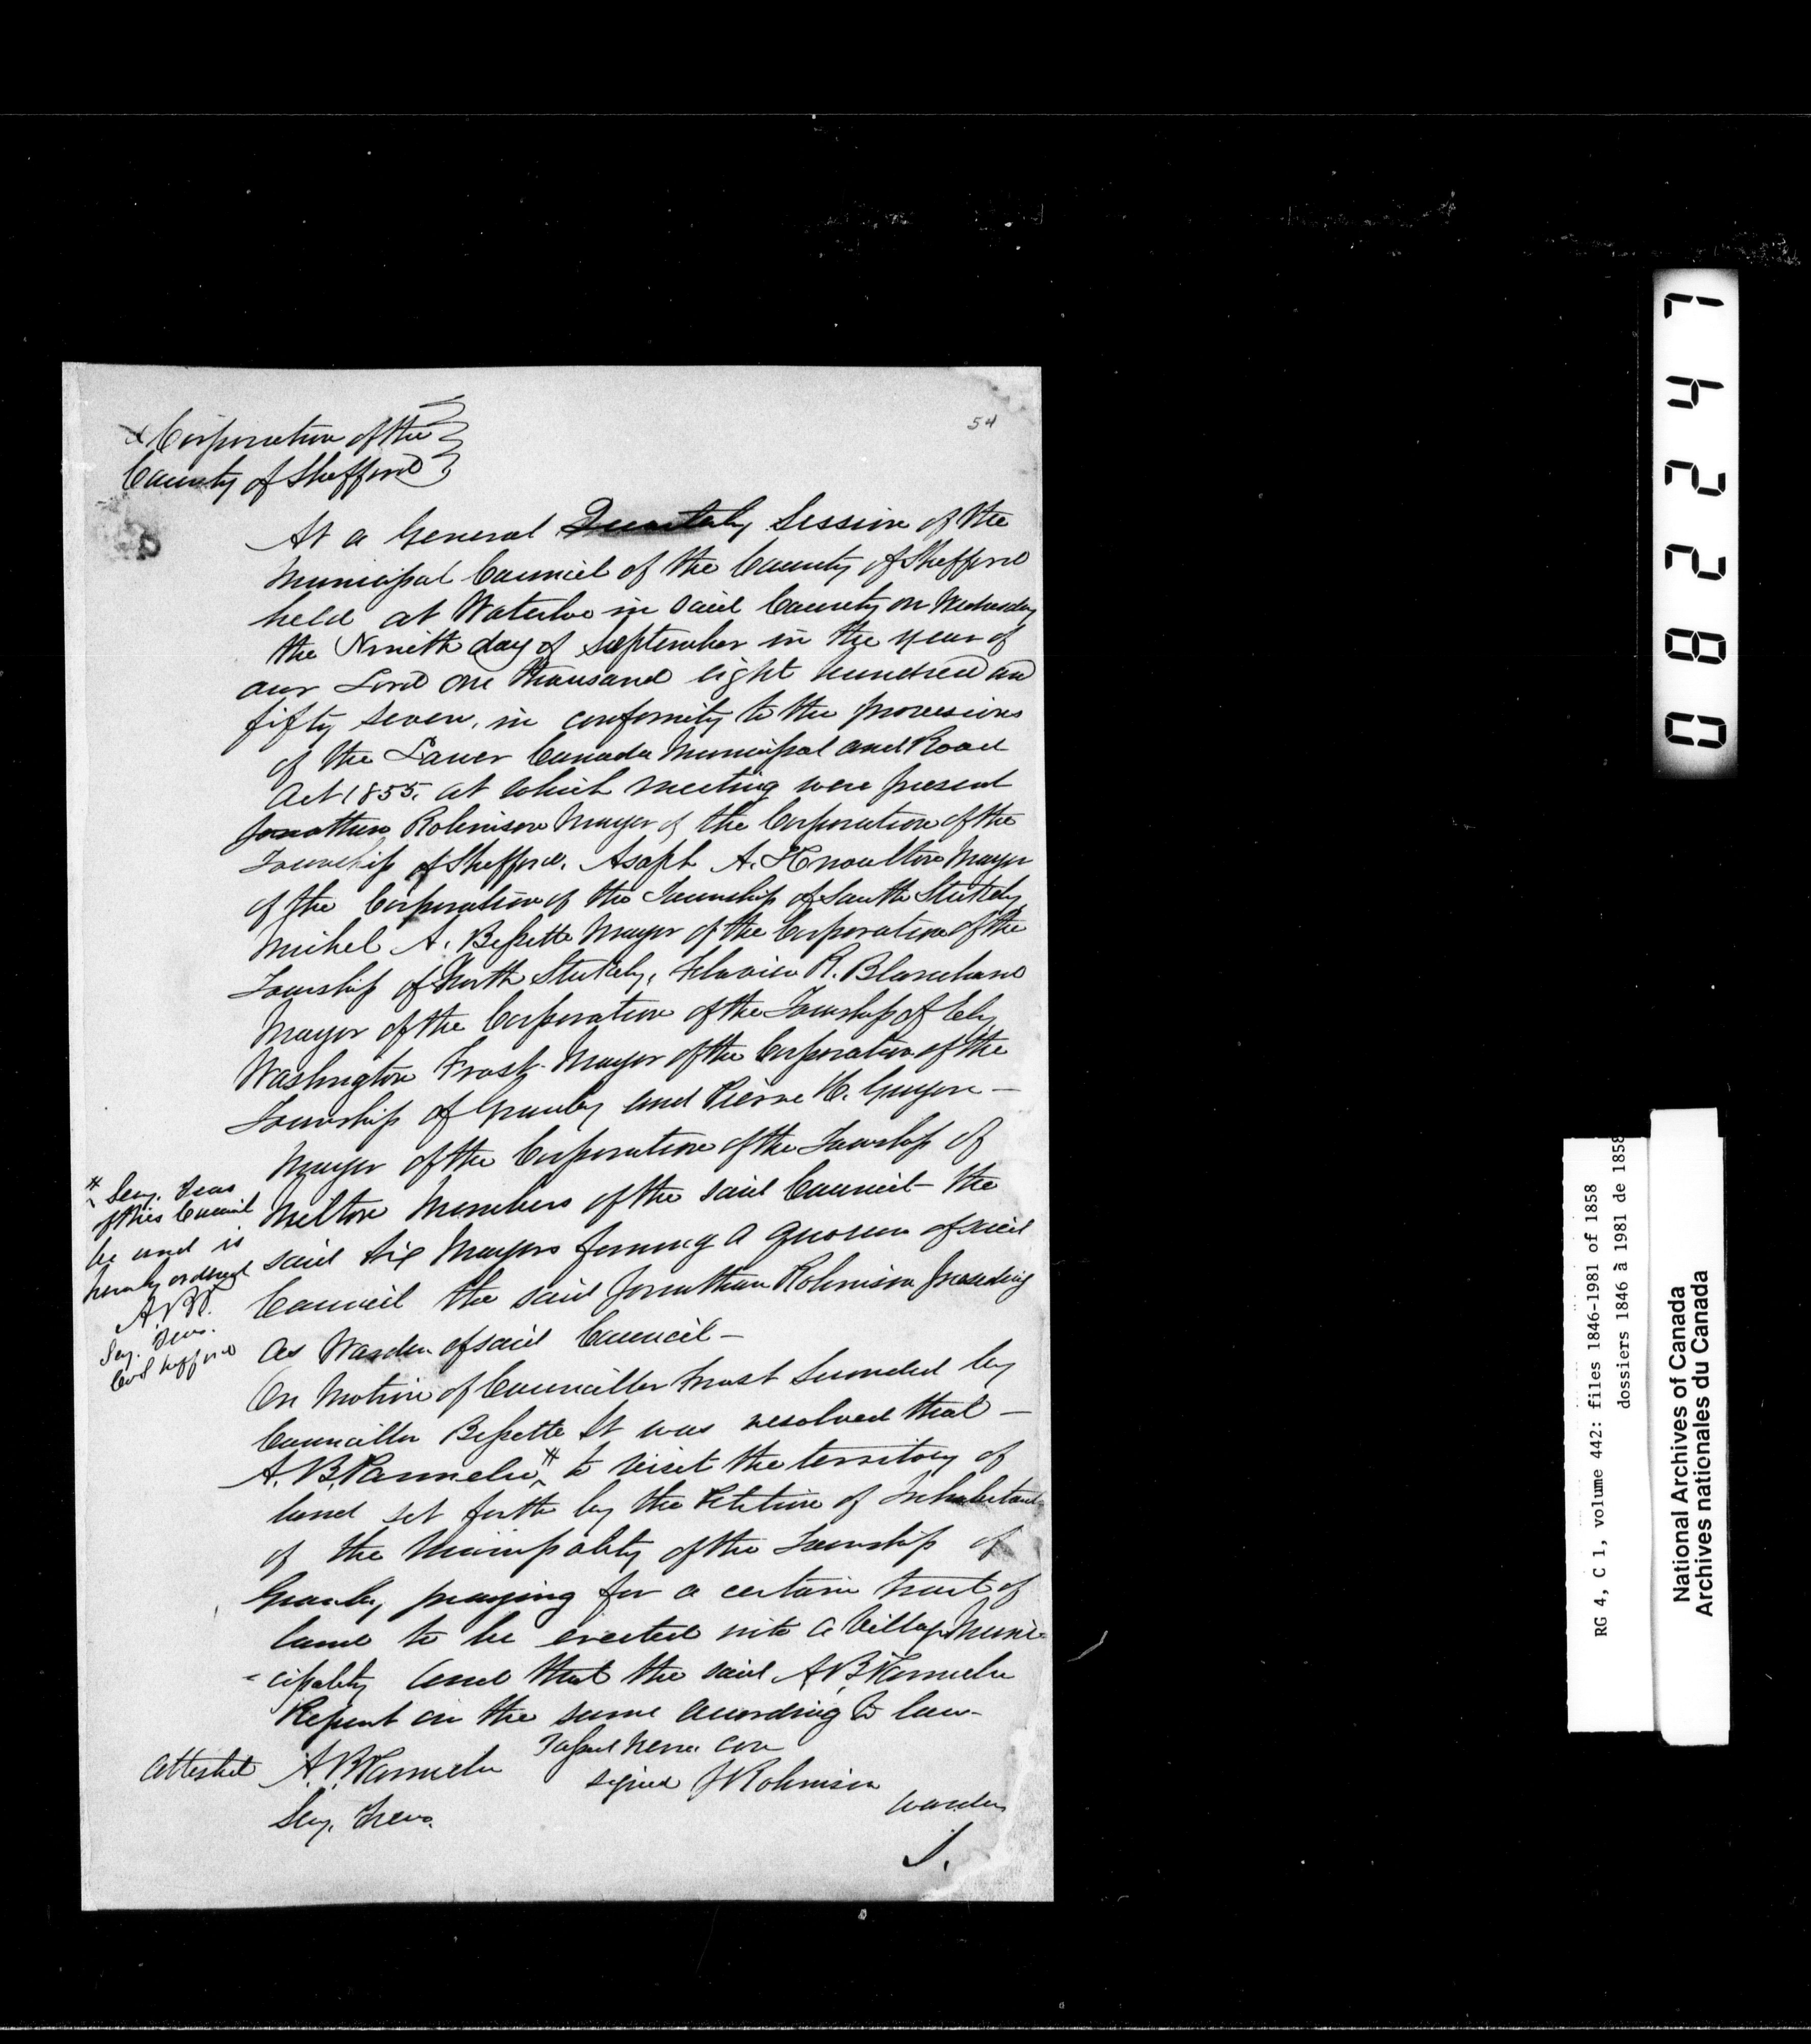 54
Corporation of the
County of Shefford
At a General Quartely Session of the
Municipal Council of the County of Shefford
held at Waterloo in said County on Wednesday
the Nineth day of September in the year of
our Lord one thousand eight hundred and
fifty seven, in conformity to the provisions
of the Lower Canada Municipal and Road
Act 1855. at which meeting were present
Jonathan Robinson Mayor of the Corporation of the
Township of Shefford. Asaph A. Knoulton Mayor
of the Corporation of the Township of South Stukely
Michel A. Bessette Mayor of the Corporation of the
Township of North Stukely, Flavien R. Blanchard
Mayor of the Corporation of the Township of Ely
Washington Frost Mayor of the Corporation of the
Township of Granby and Pierre H. Guyon —
Mayor of the Corporation of the Township of
Milton Members of the said Council — the
said six Mayors forming a quorum of said
Council the said Jonathan Robinson presiding
as Warden of said Council —
On Motion of Councillor Frost Seconded by
Councillor Bessette It was resolved that —
A. B. Parmelee # to visit the territory of
land set forth by the Petition of Inhabitants
of the Municipality of the Township of
Granby praying for a certain tract of
land to be erected into a Village Muni=
=cipality and that the said A. B. Parmelee
Report on the same according to law—
Passed nem. con
Attested A. B. Parmelee signed J Robinson
Secy. Treas. Warden
J.
# Secy. Treas
of this Council
be and is
hereby ordered
A.B.P.
Secy. Treas.
Co of Shefford
082247
RG 4, C 1, volume 442: files 1846-1981 of 1858
dossiers 1846 à 1981 de 1858
National Archives of Canada
Archives nationales du Canada